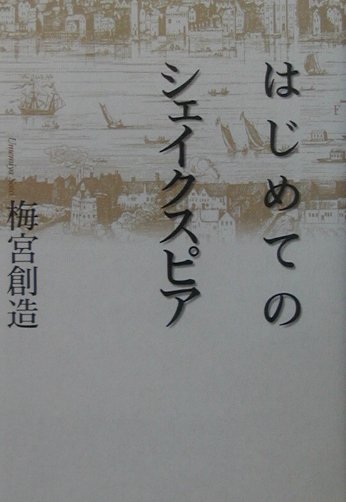 はじめての
シェイクスピア
梅宮創造
Umemiya Sozo